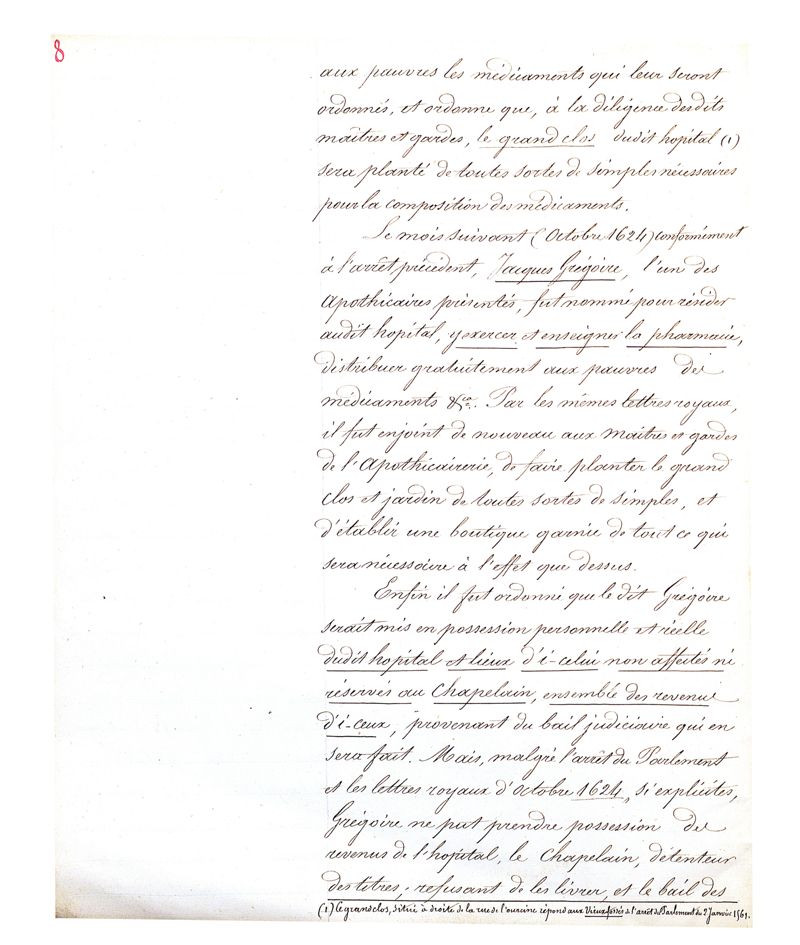 8
aux pauvres les médicaments qui leur seront
ordonnés, et ordonne que, à la diligence desdits
maîtres et gardes, le grand clos dudit hopital (1)
sera planté de toutes sortes de simples nécessaires
pour la composition des médicaments.
Le mois suivant (Octobre 1624) conformément
à l'arrêt précédent, Jacques Grégoire, l'un des
Apothicaires présentés, fut nommé pour résider
audit hopital, y exercer et enseigner la pharmacie,
distribuer gratuitement aux pauvres des
médicaments &ca. Par les mêmes lettres royaux,
il fut enjoint de nouveau aux maîtres et gardes
de l'Apothicairerie, de faire planter le grand
clos et jardin de toutes sortes de simples, et
d'établir une boutique garnie de tout ce qui
sera nécessaire à l'effet que dessus.
Enfin il fut ordonné que le dit Grégoire
serait mis en possession personnelle et réelle
dudit hopital et lieux d'i-celui non affectés ni
réservés au Chapelain, ensemble des revenus
d'i-ceux, provenant du bail judiciaire qui en
sera fait. Mais, malgré l'arrêt du Parlement
et les lettres royaux d'Octobre 1624, si explicites,
Grégoire ne put prendre possession des
revenus de l'hopital, le Chapelain, détenteur
des titres, refusant de les livrer, et le bail des
(1) Ce grand clos, situé à droite de la rue de l'ourcine répond aux Vieux fossés de l'arrêt du Parlement du 2 Janvier 1561.